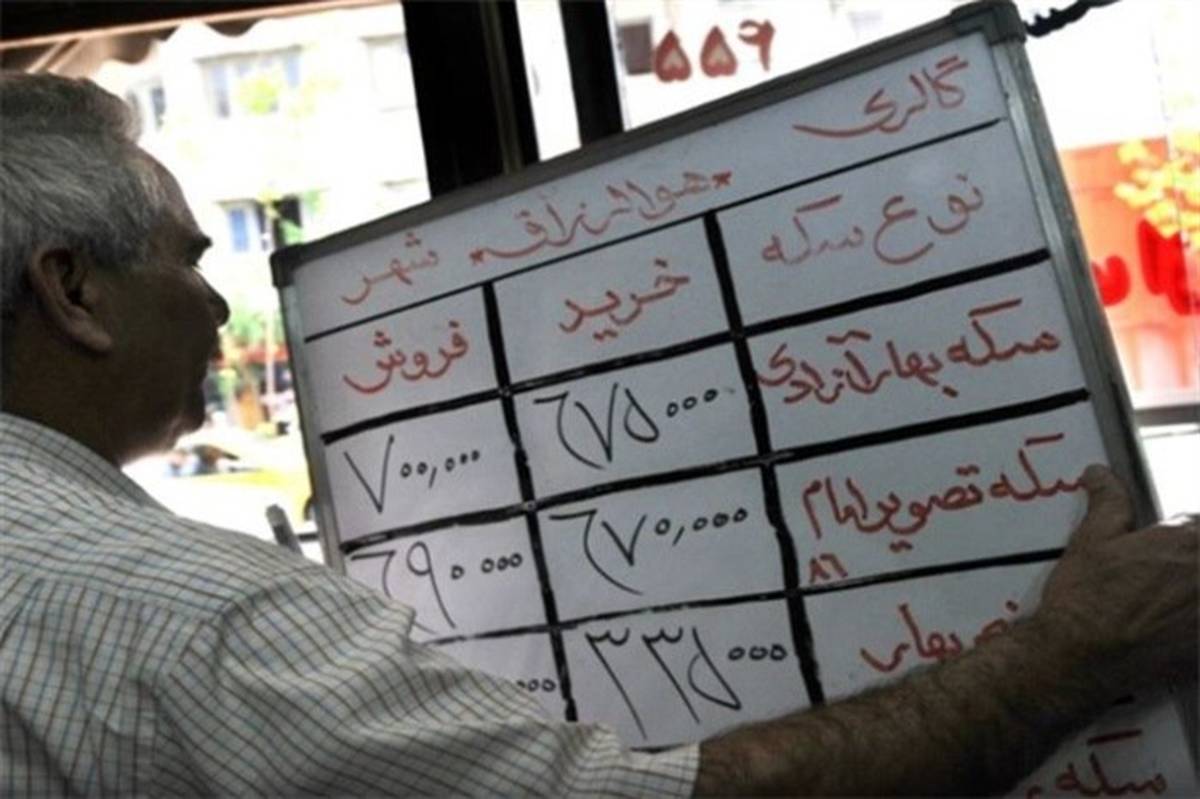 ۵۵۶
گالری *هوالرزاق* شهر
نوع سکه خرید فروش
سکه بهار آزادی ۶۷۵۰۰۰ ۷۰۰,۰۰۰
سکه تصویر امام ۸۶ ۶۷۰,۰۰۰ ۶۹۰۰۰۰
بهار ۳۳۵۰۰۰
سکه